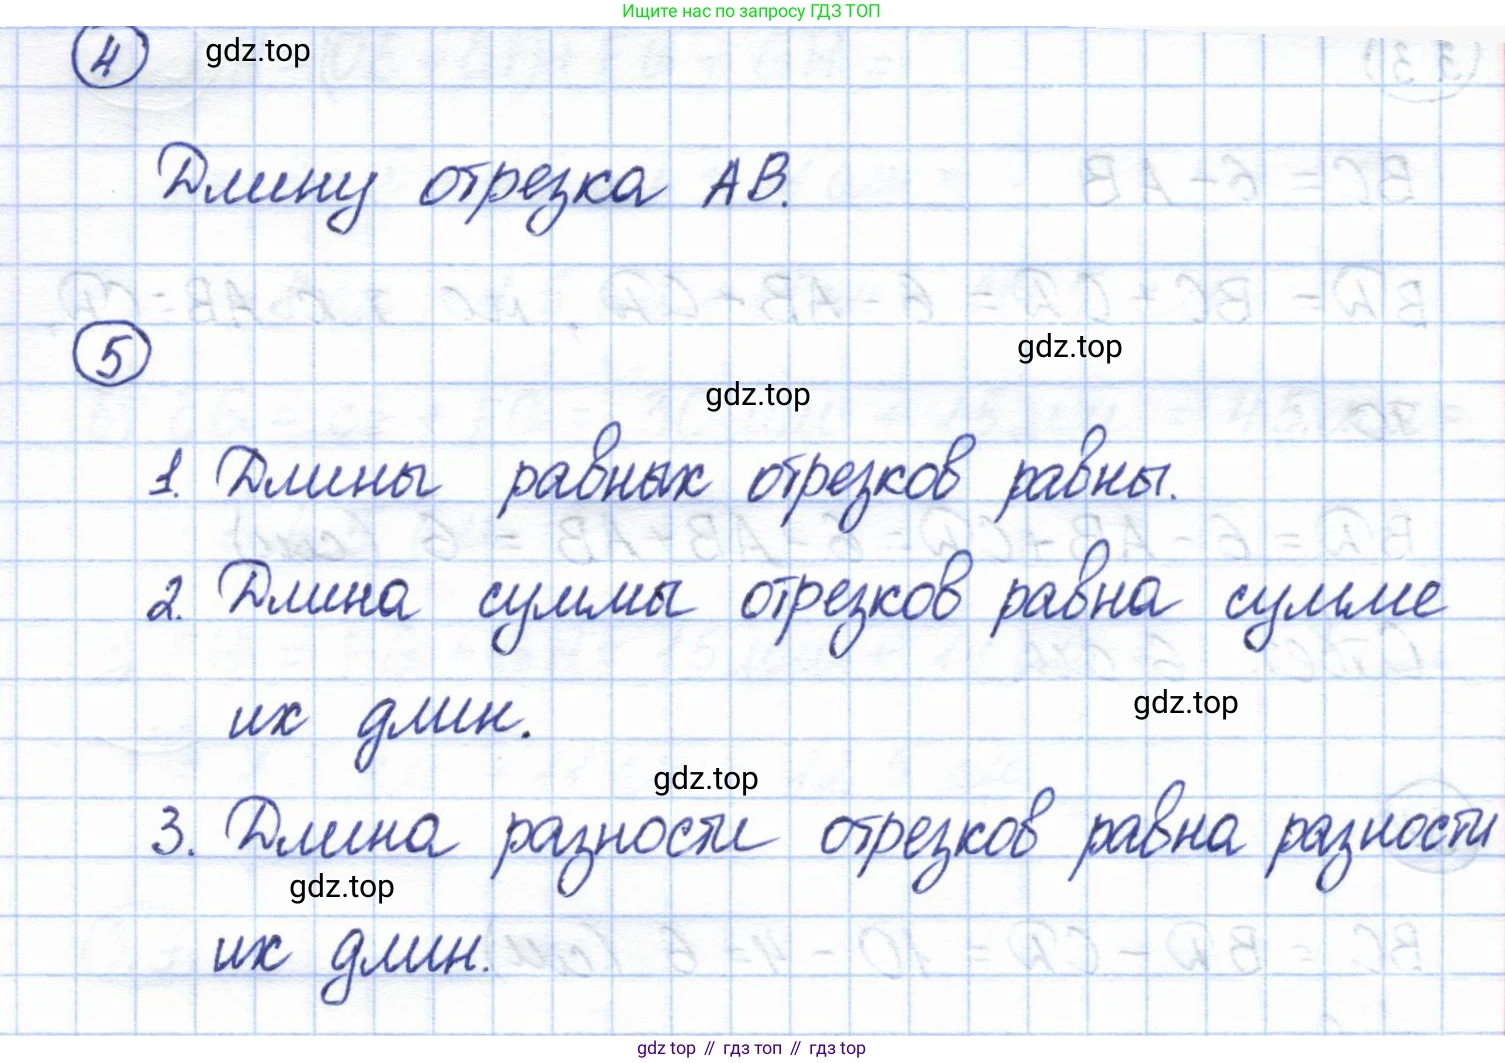 Ищите нас по запросу ГДЗ ТОП
4 gdz.top
Длину отрезка AB.
5
gdz.top
gdz.top
1. Длины равных отрезков равны.
2. Длина суммы отрезков равна сумме
их длин.
gdz.top
gdz.top
3. Длина разности отрезков равна разности
gdz.top
их длин.
gdz top // гдз топ // гдз top